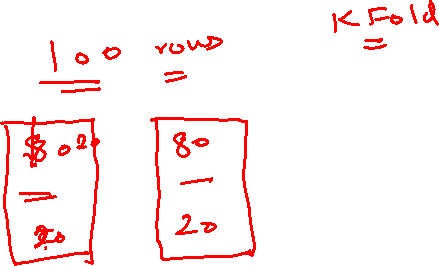 K Fold
100 rows
80 20 80
20 20